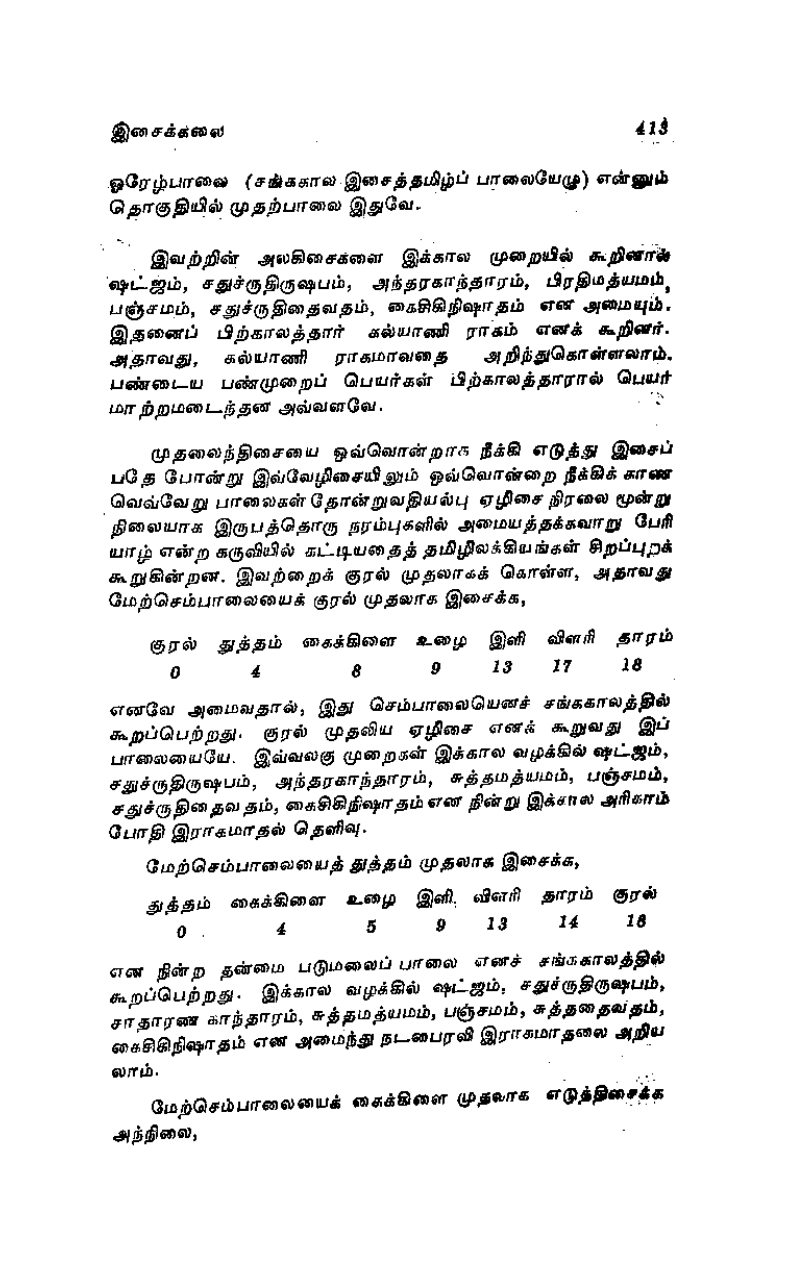 இசைக்கலை 413
ஓரேழ்பாலை (சங்ககால இசைத்தமிழ்ப் பாலையேழு) என்னும்
தொகுதியில் முதற்பாலை இதுவே.
இவற்றின் அலகிசைகளை இக்கால முறையில் கூறினால்
ஷட்ஜம், சதுச்ருதிருஷபம், அந்தரகாந்தாரம், பிரதிமத்யமம்,
பஞ்சமம், சதுச்ருதிதைவதம், கைசிகிநிஷாதம் என அமையும்.
இதனைப் பிற்காலத்தார் கல்யாணி ராகம் எனக் கூறினர்.
அதாவது, கல்யாணி ராகமாவதை அறிந்துகொள்ளலாம்.
பண்டைய பண்முறைப் பெயர்கள் பிற்காலத்தாரால் பெயர்
மாற்றமடைந்தன அவ்வளவே.
முதலைந்திசையை ஒவ்வொன்றாக நீக்கி எடுத்து இசைப்
பதே போன்று இவ்வேழிசையிலும் ஒவ்வொன்றை நீக்கிக் காண
வெவ்வேறு பாலைகள் தோன்றுவதியல்பு ஏழிசை நிரலை மூன்று
நிலையாக இருபத்தொரு நரம்புகளில் அமையத்தக்கவாறு பேரி
யாழ் என்ற கருவியில் கட்டியதைத் தமிழிலக்கியங்கள் சிறப்புறக்
கூறுகின்றன. இவற்றைக் குரல் முதலாகக் கொள்ள, அதாவது
மேற்செம்பாலையைக் குரல் முதலாக இசைக்க,
குரல் துத்தம் கைக்கிளை உழை இளி விளரி தாரம்
0 4 8 9 13 17 18
எனவே அமைவதால், இது செம்பாலையெனச் சங்ககாலத்தில்
கூறப்பெற்றது. குரல் முதலிய ஏழிசை எனக் கூறுவது இப்
பாலையையே. இவ்வலகு முறைகள் இக்கால வழக்கில் ஷட்ஜம்,
சதுச்ருதிருஷபம், அந்தரகாந்தாரம், சுத்தமத்யமம், பஞ்சமம்,
சதுச்ருதிதைவதம், கைசிகிநிஷாதம் என நின்று இக்கால அரிகாம்
போதி இராகமாதல் தெளிவு.
மேற்செம்பாலையைத் துத்தம் முதலாக இசைக்க,
துத்தம் கைக்கிளை உழை இளி விளரி தாரம் குரல்
0 4 5 9 13 14 18
என நின்ற தன்மை படுமலைப் பாலை எனச் சங்ககாலத்தில்
கூறப்பெற்றது. இக்கால வழக்கில் ஷட்ஜம், சதுச்ருதிருஷபம்,
சாதாரண காந்தாரம், சுத்தமத்யமம், பஞ்சமம், சுத்ததைவதம்,
கைசிகிநிஷாதம் என அமைந்து நடபைரவி இராகமாதலை அறிய
லாம்.
மேற்செம்பாலையைக் கைக்கிளை முதலாக எடுத்திசைக்க
அந்நிலை,